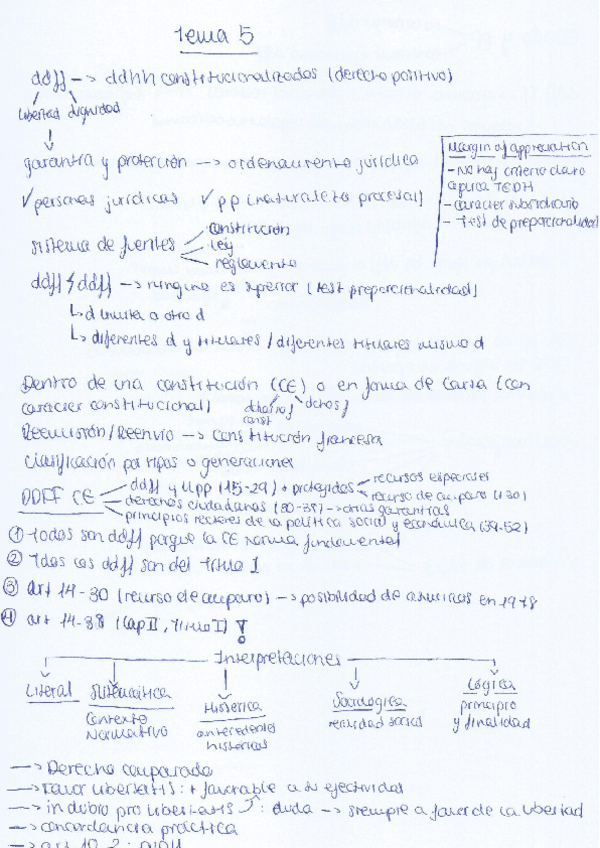 Tema 5
ddff —> ddhh constitucionalizados (derecho positivo)
libertad dignidad
garantía y protección —> ordenamiento jurídico
✓personas jurídicas ✓pp (naturaleza procesal)
Margin of appreciation
- No hay criterio claro
aplica TEDH
- carácter subsidiario
- Test de preporcionalidad
sistema de fuentes
constitución
ley
reglamento
ddff ddff —> ninguno es superior (test preporcionalidad)
↳ d limita a otro d
↳ diferentes d y titulares / diferentes titulares mismo d
Dentro de una constitución (CE) o en forma de Carta (con
carácter constitucional)
const
Reemisión/Reenvío —> Constitución francesa
Clasificación por tipos o generaciones
DDFF CE
ddff y llpp (15-29) + protegidos
recursos especiales
recurso de amparo (+30)
derechos ciudadanos (30-38) —> otras garantías
principios rectores de la política social y económica (39-52)
① Todos son ddff porque la CE norma fundamental
② Tdos los ddff son del Título I
③ art 14-30 (recurso de amparo) —> posibilidad de en 1978
④ art 14-38 (Cap II, Título I) !
Interpretaciones
Literal
Sistemática
Contexto
Normativo
Histórica
antecedentes
históricos
Sociológica
realidad social
Lógica
principio
y finalidad
—> Derecho comparado
—> Favor libertatis : + favorable a su efectividad
—> in dubio pro libertatis : duda —> siempre a favor de la libertad
—> concordancia práctica
—> art 10.2 :